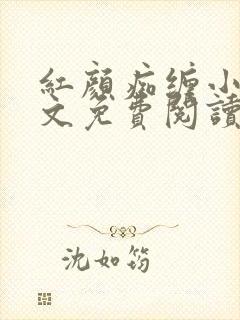 紅顏痴缠小
文免費閱讀
沈如筠